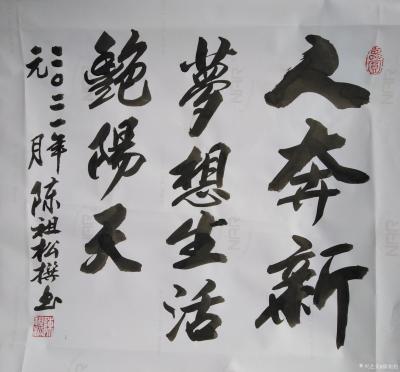 人奔新
夢想生活
艷陽天
二〇二一年
元月
陈祖松撰书